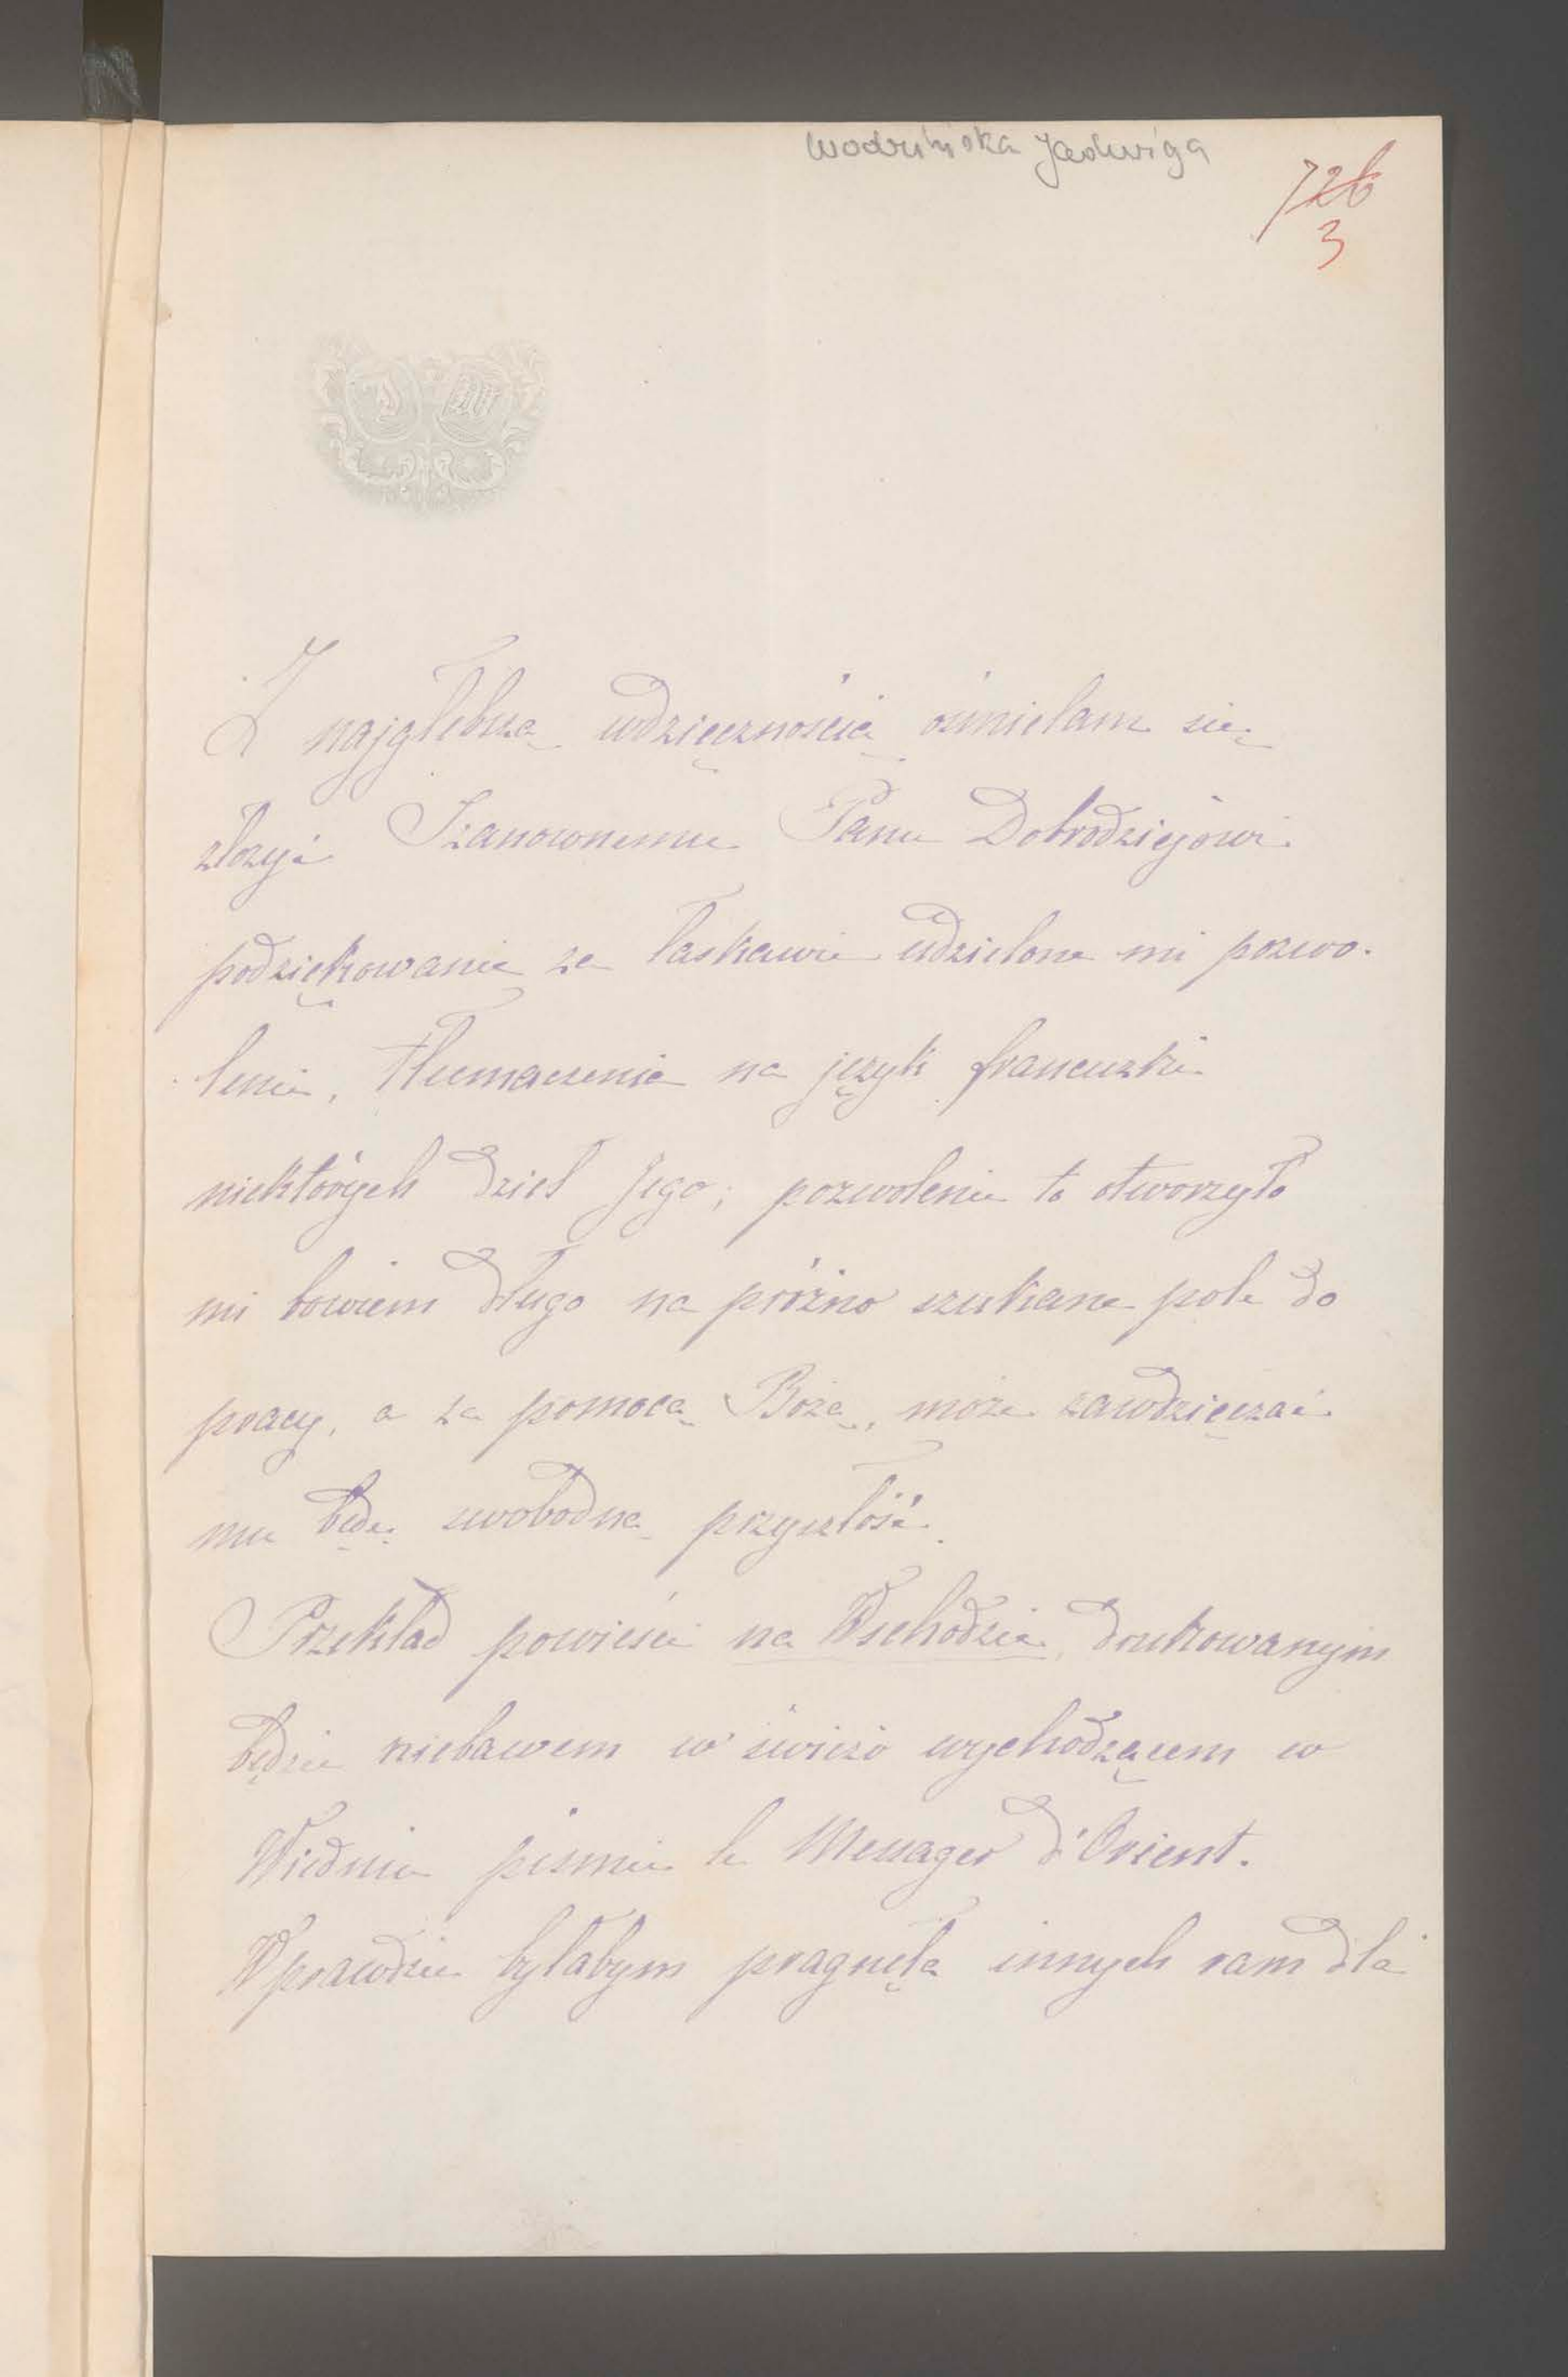 Wodzińska Jadwiga
726
3
J W
Z najgłębszą wdzięcznością ośmielam się
złożyć Szanownemu Panu Dobrodziejowi
podziękowanie za łaskawie udzielone mi pozwo-
lenie, tłumaczenia na język francuzki
niektórych dzieł Jego; pozwolenie to otworzyło
mi bowiem długo na próżno szukane pole do
pracy, a za pomocą Bożą, może zawdzięczać
mu będę swobodną przyszłość.
Przekład powieści na Wschodzie, drukowanym
będzie niebawem w świeżo wychodzącem w
Wiedniu piśmie le Messager d'Orient.
Wprawdzie byłabym pragnęła innych ram dla